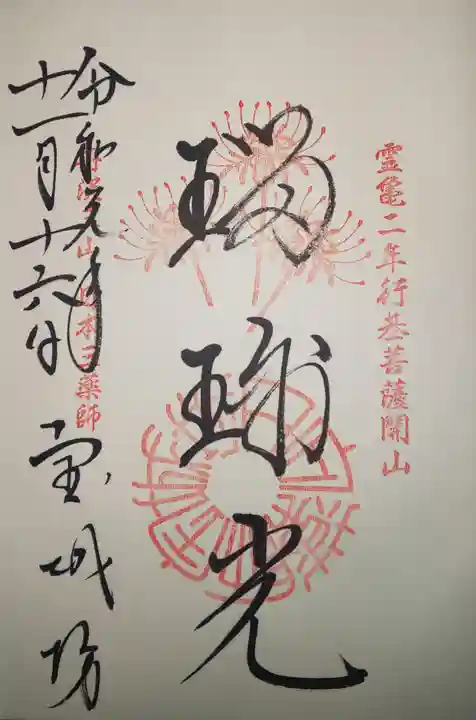 霊亀二年行基菩薩開山
瑠璃光
山 日本三薬師
令和元年
十一月十六日 宝城坊